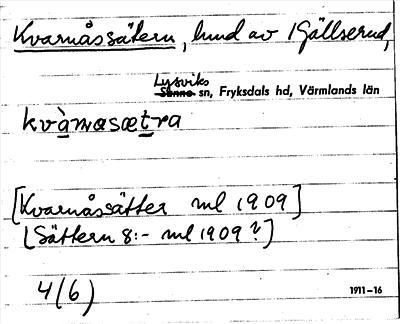 Kvarnåssätern, hmd av Gällserud,
Lysviks
Sunne sn, Fryksdals hd, Värmlands län
kvàrnasætra
[Kvarnåssätter ml 1909]
[Sättern 8:- ml 1909?]
4(6)
1911-16